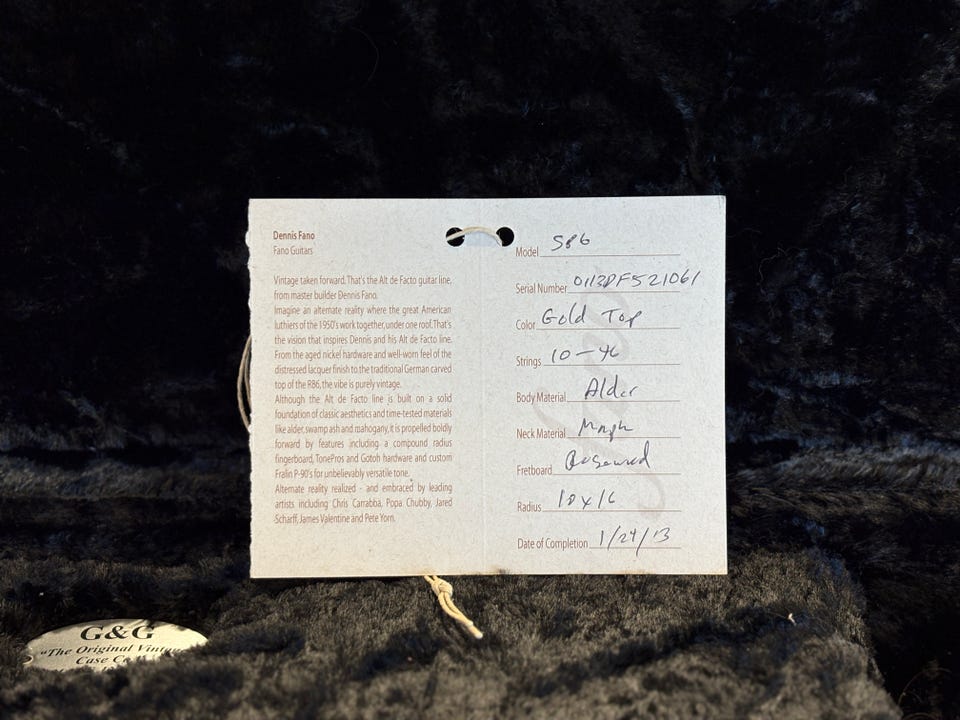 Dennis Fano
Fano Guitars
Vintage taken forward. That's the Alt de Facto guitar line,
from master builder Dennis Fano.
Imagine an alternate reality where the great American
luthiers of the 1950's work together, under one roof. That's
the vision that inspires Dennis and his Alt de Facto line.
From the aged nickel hardware and well-worn feel of the
distressed lacquer finish to the traditional German carved
top of the RB6, the vibe is purely vintage.
Although the Alt de Facto line is built on a solid
foundation of classic aesthetics and time-tested materials
like alder, swamp ash and mahogany, it is propelled boldly
forward by features including a compound radius
fingerboard, TonePros and Gotoh hardware and custom
Fralin P-90's for unbelievably versatile tone.
Alternate reality realized - and embraced by leading
artists including Chris Carrabba, Popa Chubby, Jared
Scharff, James Valentine and Pete Yorn.
Model SP6
Serial Number 0113DF521061
Color Gold Top
Strings 10-46
Body Material Alder
Neck Material Maple
Fretboard Rosewood
Radius 10x16
Date of Completion 1/24/13
G&G
"The Original Vintage
Case Co